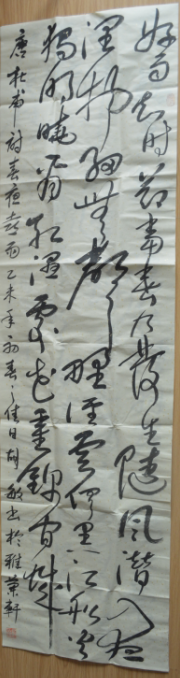 好雨知时節當春乃發生隨風潛入夜
潤物細無聲野徑雲俱黑江船火
獨明曉看紅濕處花重錦官城
唐杜甫詩春夜喜雨乙未年初春之佳日胡敏书於雅榮軒